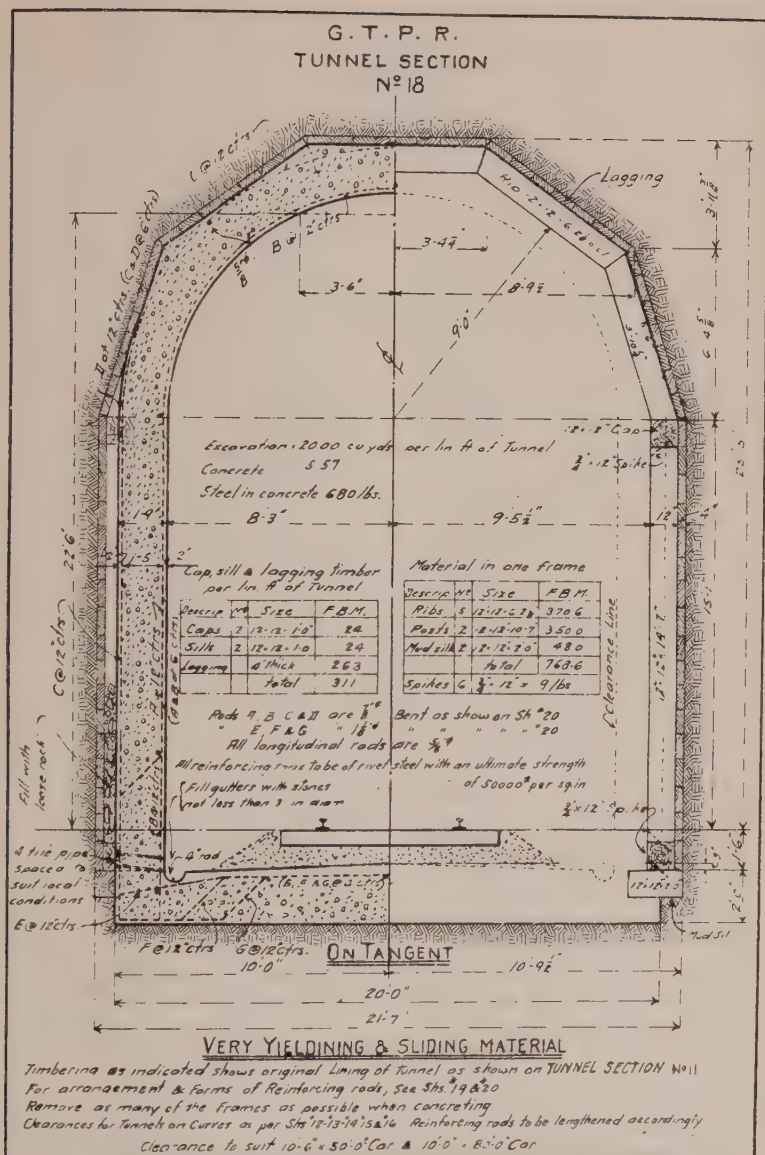 G.T.P.R.
TUNNEL SECTION
Nº 18
L @ 12 ctrs
Lagging
3'-11 3/8"
B @ 12 ctrs
3'-4 1/4"
3'-6"
8'-9 1/2"
9'.0"
6 4 5/8"
D at 12" ctrs (C & D @ 6 ctrs)
12 - 12" Cap
3/4" - 12" Spike
Excavation - 20.00 cu yds per lin ft of Tunnel
Concrete 5.57
Steel in concrete 680 lbs.
8'-3"
9'-5 1/2"
12"
1'-9
1'-5
2"
22'6"
15'-1
Cap, sill & lagging timber
per lin. ft of Tunnel
Descrip Nº Size F.B.M.
Caps 2 12-12-1.0 24
Sills 2 12-12-1.0 24
Lagging 4" thick 263
total 311
Material in one frame
Descrip Nº Size F.B.M.
Ribs 5 370.6
Posts 2 350.0
Mud sills 2 12-12-2.0 48.0
total 768.6
Spikes 6 3/4" - 12" = 9 lbs
C @ 12" ctrs
A @ 12" ctrs
(A & B @ 6 ctrs)
℄ Clearance Line
12"-12"-14'-2"
Rods A, B, C & D are Bent as shown on Sh #20
" E, F & G " " " " " #20
All longitudinal rods are
All reinforcing rods to be of rivet steel with an ultimate strength
of 50000# per sq in
Fill gutters with stones
not less than 3 in diam
3/4 x 12" Spike
Fill with
loose rock
4" rad
4 tile pipe
spaced to
suit local
conditions
E @ 12" ctrs
(E, F & G @ ctrs)
1'-6"
2'-0"
12-12-2.0
Mud Sil
F @ 12 ctrs
G @ 12 ctrs.
ON TANGENT
10'-0"
10'-9 1/2"
20'-0"
21'-7"
VERY YIELDINING & SLIDING MATERIAL
Timbering as indicated shows original Lining of Tunnel as shown on TUNNEL SECTION Nº 11
For arrangement & Forms of Reinforcing rods, See Shs. #19 & #20
Remove as many of the Frames as possible when concreting
Clearances for Tunnels on Curves as per Shs #12-13-14 15 & 16 Reinforcing rods to be lengthened accordingly
Clearance to suit 10'-6" x 50'-0" Car & 10'-0" - 80'-0" Car